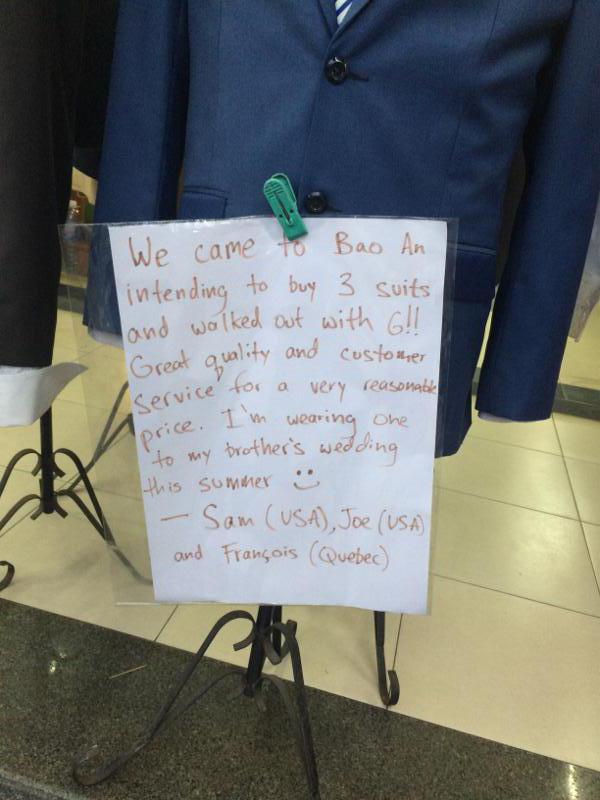 We came to Bao An
intending to buy 3 suits
and walked out with 6!!
Great quality and customer
service for a very reasonable
price. I'm wearing one
to my brother's wedding
this summer :)
— Sam (USA), Joe (USA)
and François (Quebec)